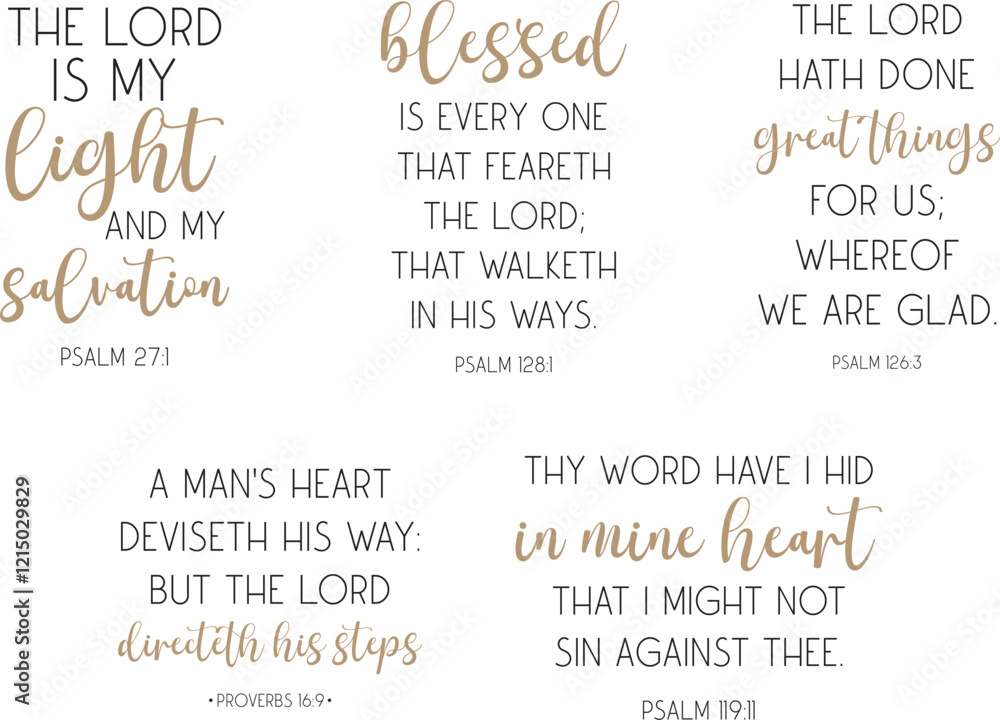 THE LORD
IS MY
light
AND MY
salvation
PSALM 27:1
blessed
IS EVERY ONE
THAT FEARETH
THE LORD;
THAT WALKETH
IN HIS WAYS.
PSALM 128:1
THE LORD
HATH DONE
great things
FOR US;
WHEREOF
WE ARE GLAD.
PSALM 126:3
A MAN'S HEART
DEVISETH HIS WAY:
BUT THE LORD
directeth his steps
•PROVERBS 16:9•
THY WORD HAVE I HID
in mine heart
THAT I MIGHT NOT
SIN AGAINST THEE.
PSALM 119:11
Adobe Stock | #1215029829